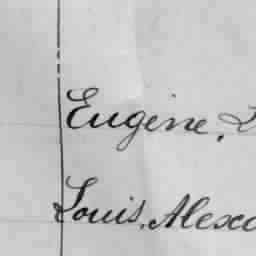 Eugène,
Louis, Alexa